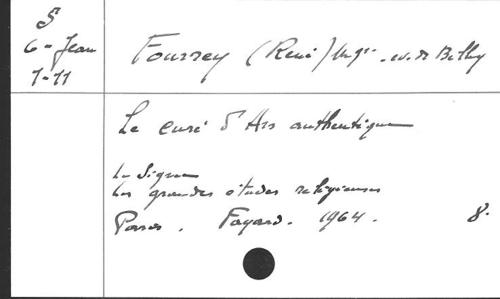 S
6-Jean
1-11
Fourrey (René) Mgr. ev. de Belley
Le curé d'Ars authentique
Le Signe
Les grandes études religieuses
Paris. Fayard. 1964. 8.